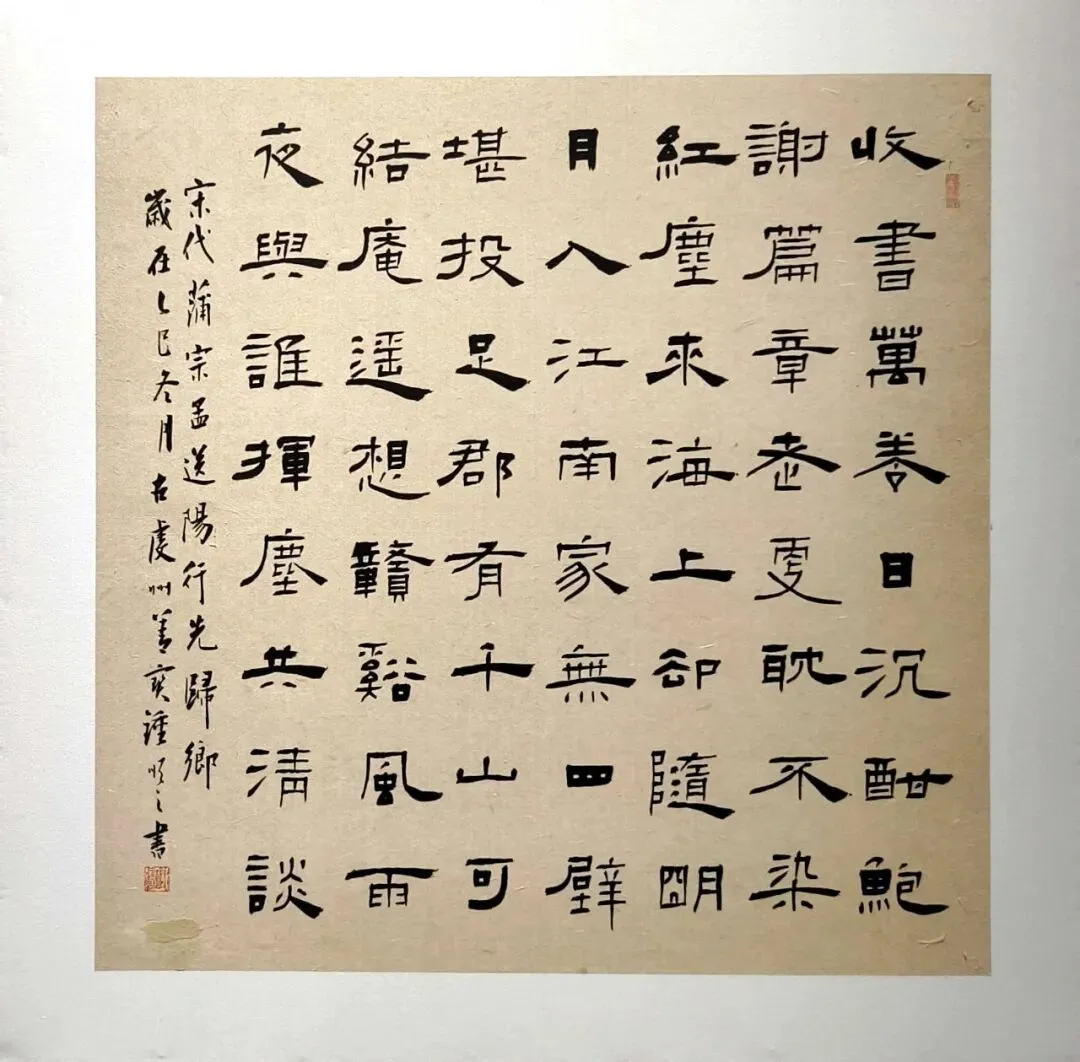 收書萬卷日沉酣鮑
謝篇章老更耽不染
紅塵來海上卻隨明
月入江南家無四壁
堪投足郡有千山可
結庵遥想贛谿風雨
夜與誰揮麈共清談
宋代蒲宗孟送陽行先歸鄉
歲在乙巳冬月古虔州善賓鍾順之書